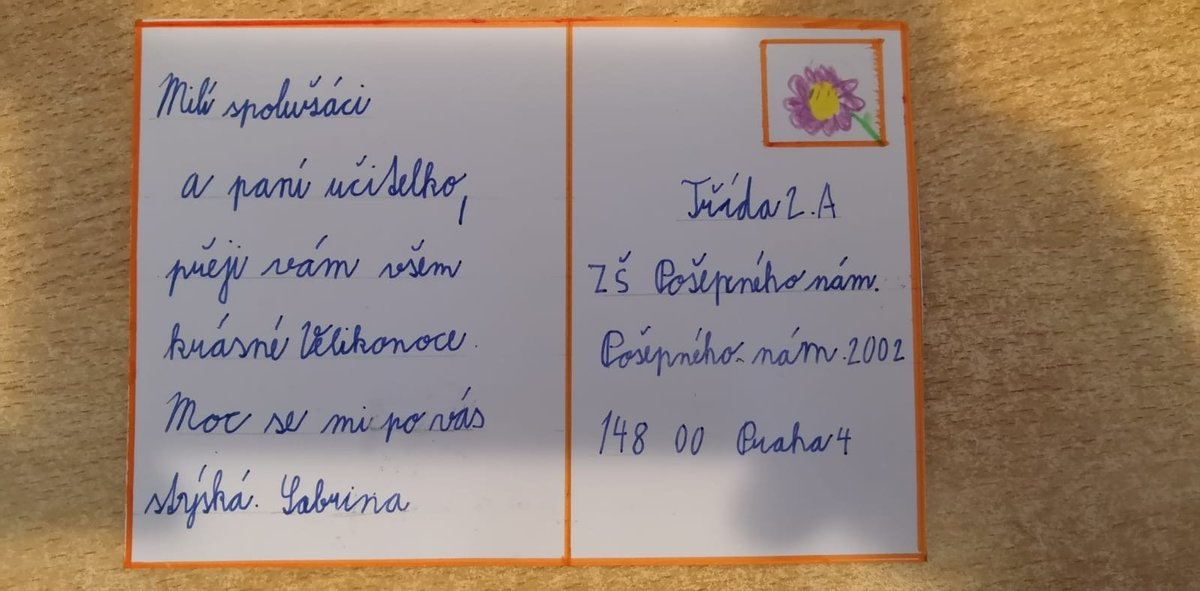 Milí spolužáci
a paní učitelko,
přeji vám všem
krásné Velikonoce.
Moc se mi po vás
stýská. Sabrina
Třída 2.A
ZŠ Pošepného nám.
Pošepného nám. 2002
148 00 Praha 4